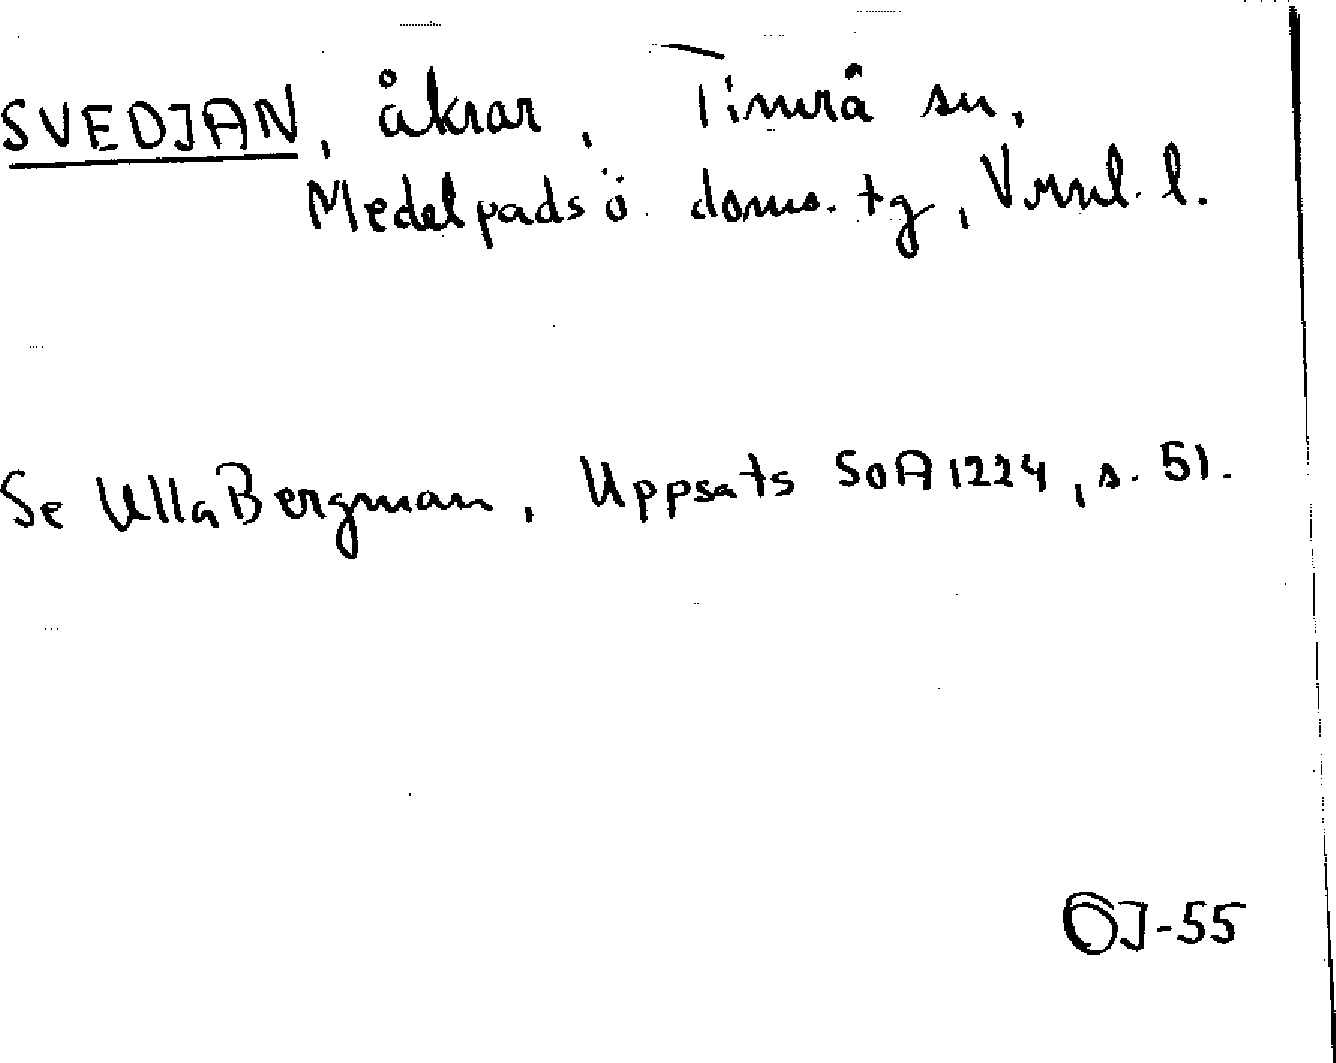 SVEDJAN, åkrar, Timrå sn,
Medelpads ö. doms. tg, Vrnl. l.
Se Ulla Bergman, Uppsats SOA 1224, s. 51.
ÖJ-55